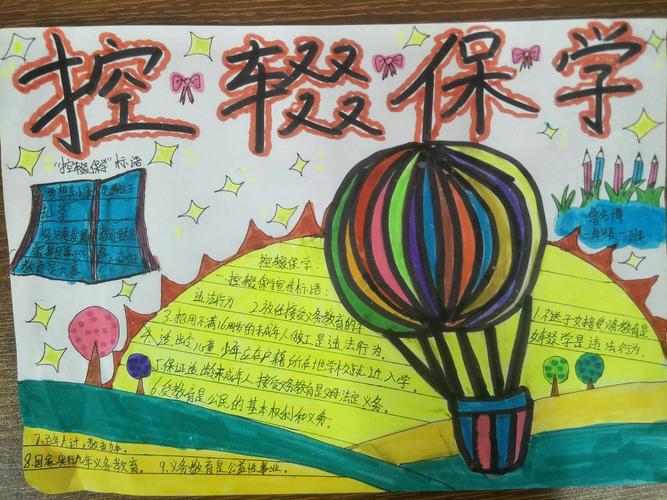 控辍保学
"控辍保学"标语
曾名博
一年级一班
控辍保学：
控辍保学宣传标语：
1.不送子女接受义务教育是
违法行为 2.放任接受义务教育的子
女辍学是违法行为。
3.招用不满16周岁的未成年人做工是违法行为。
4.适龄儿童、少年应在户籍所在地学校就近入学。
5.保证适龄未成年人接受义务教育是父母法定义务。
6.受教育是公民的基本权利和义务。
7.百年大计，教育为本。
8.国家实行九年义务教育。 9.义务教育是公益性事业。